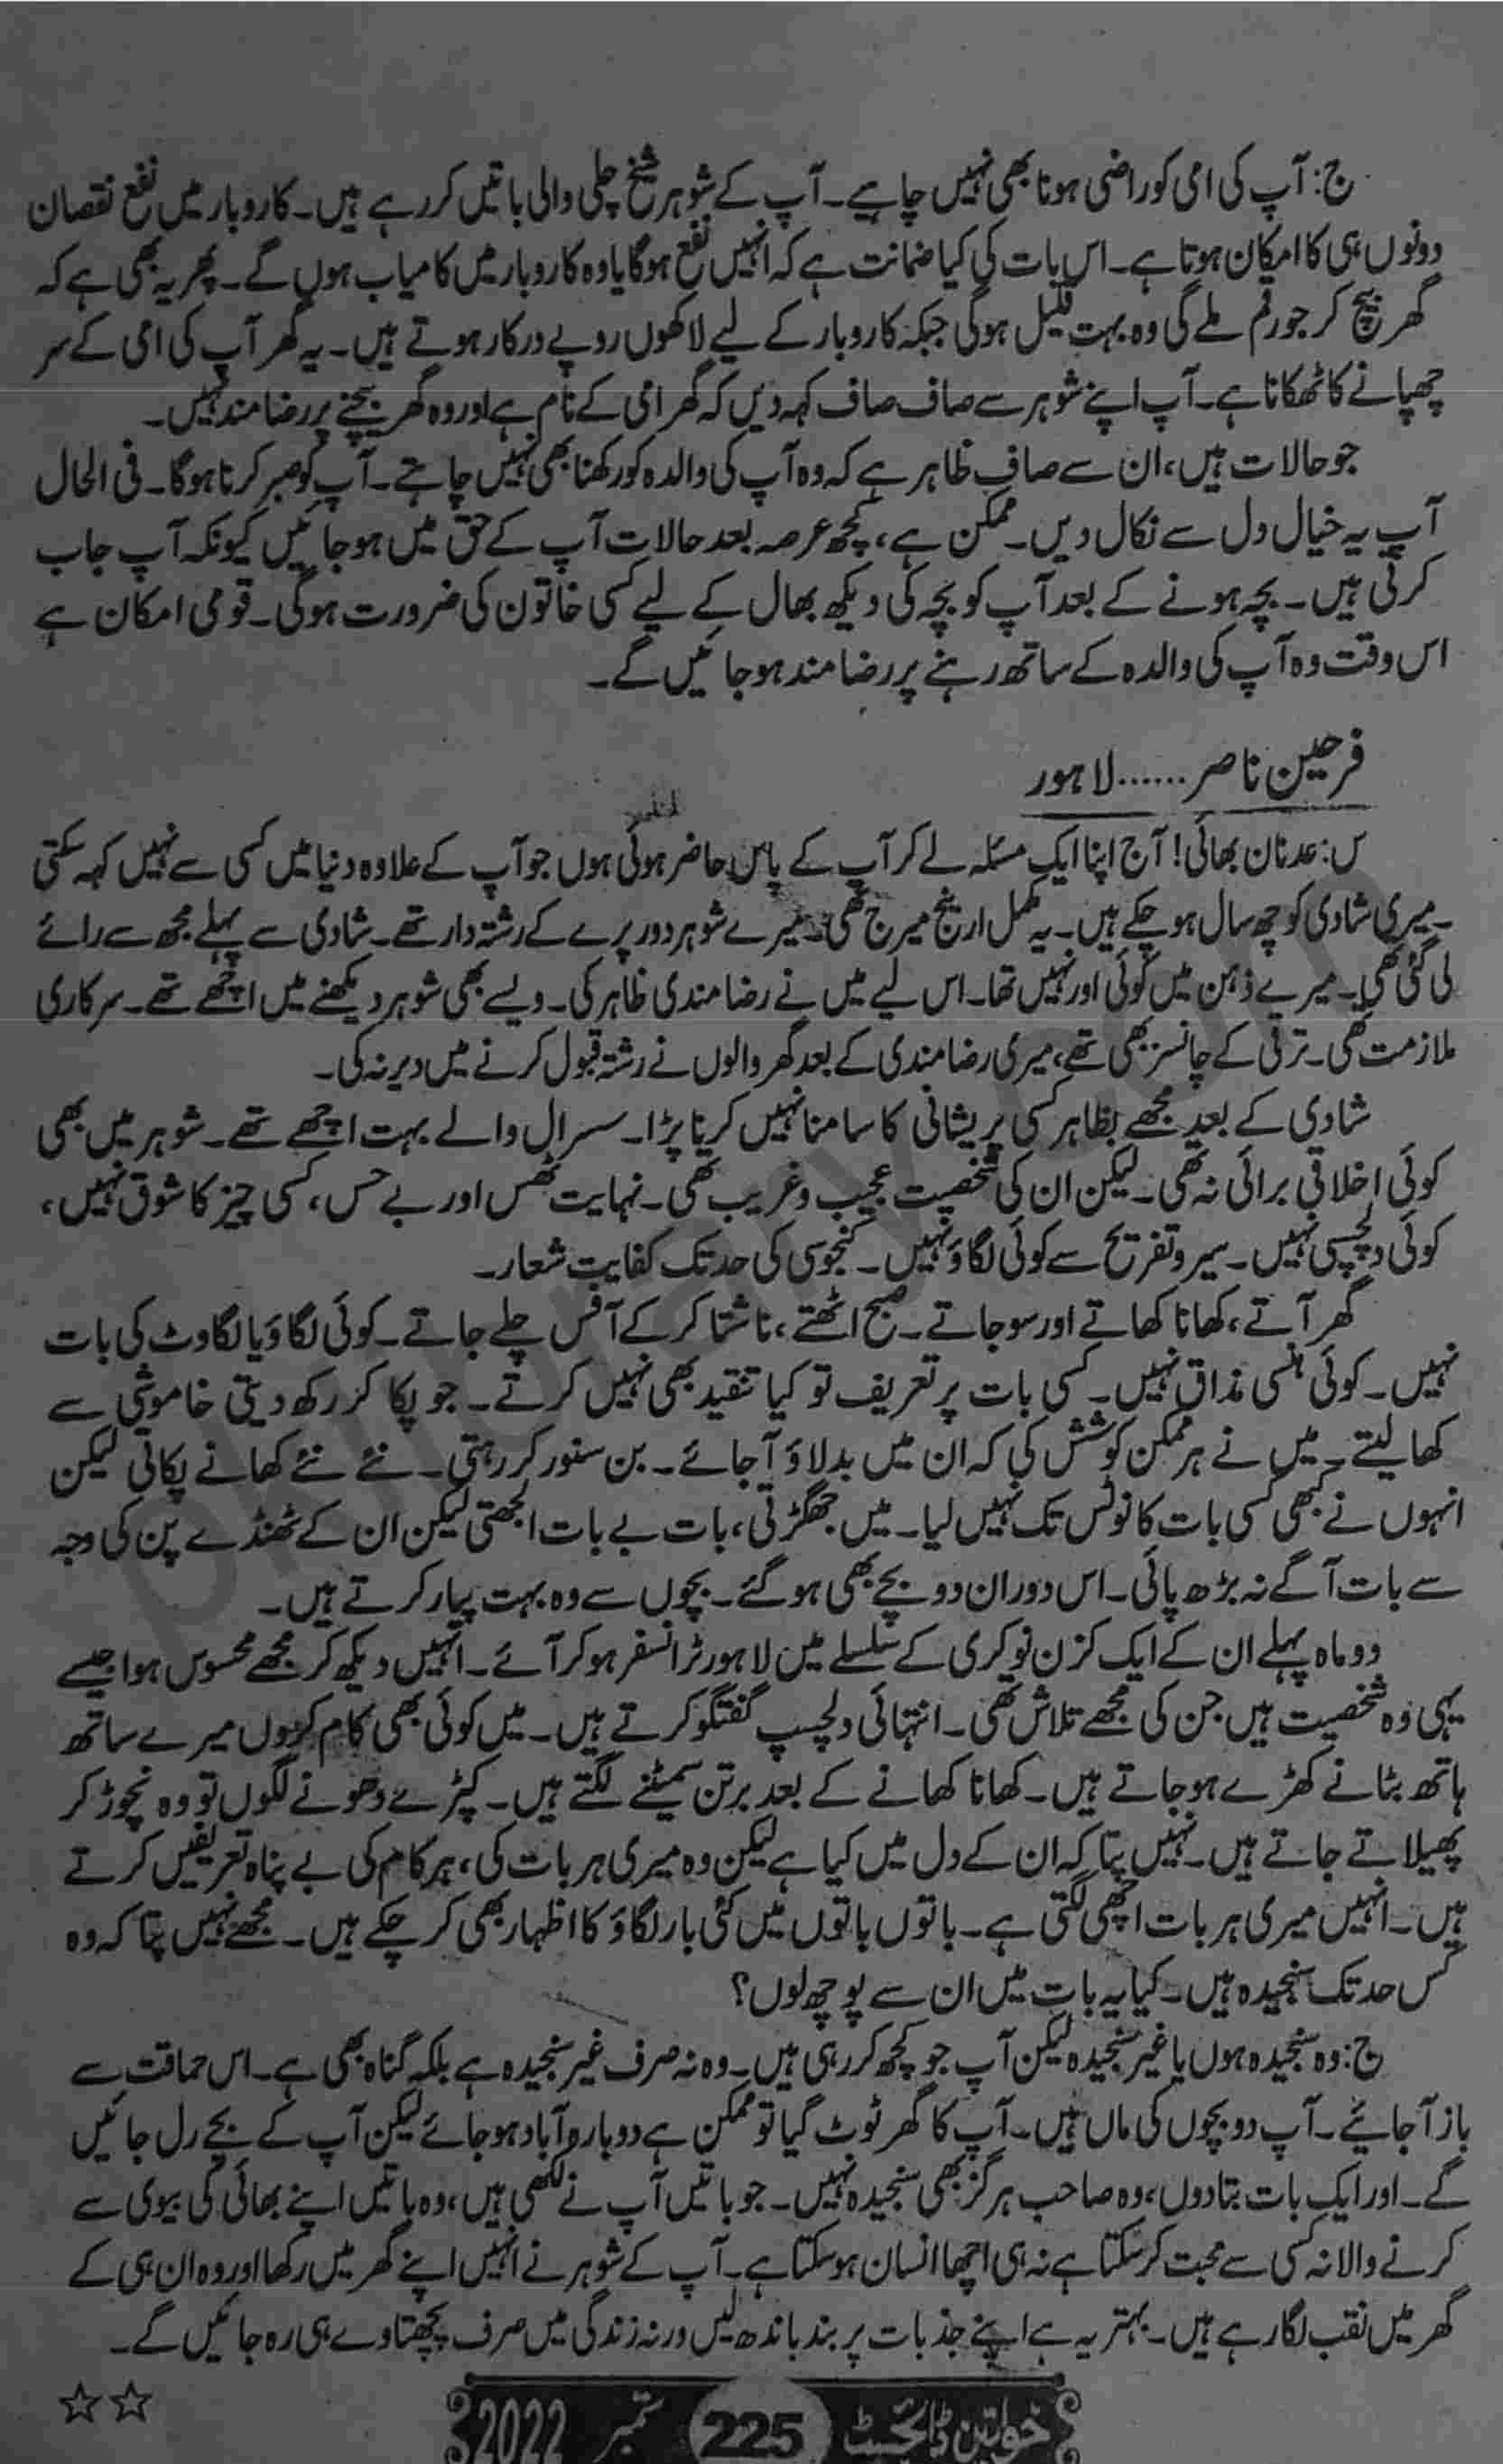 ج: آپ کی امی کو راضی ہونا بھی نہیں چاہیے۔ آپ کے شوہر شیخ چلی والی باتیں کر رہے ہیں۔ کاروبار میں نفع نقصان
دونوں ہی کا امکان ہوتا ہے۔ اس بات کی کیا ضمانت ہے کہ انہیں نفع ہوگا یا وہ کاروبار میں کامیاب ہوں گے۔ پھر یہ بھی ہے کہ
گھر بیچ کر جو رقم ملے گی وہ بہت قلیل ہوگی جبکہ کاروبار کے لیے لاکھوں روپے درکار ہوتے ہیں۔ یہ گھر آپ کی امی کے سر
چھپانے کا ٹھکانا ہے۔ آپ اپنے شوہر سے صاف صاف کہہ دیں کہ گھر امی کے نام ہے اور وہ گھر بیچنے پر رضامند نہیں۔
جو حالات ہیں، ان سے صاف ظاہر ہے کہ وہ آپ کی والدہ کو رکھنا بھی نہیں چاہتے۔ آپ کو صبر کرنا ہوگا۔ فی الحال
آپ یہ خیال دل سے نکال دیں۔ ممکن ہے، کچھ عرصہ بعد حالات آپ کے حق میں ہو جائیں کیونکہ آپ جاب
کرتی ہیں۔ بچہ ہونے کے بعد آپ کو بچہ کی دیکھ بھال کے لیے کسی خاتون کی ضرورت ہوگی۔ قومی امکان ہے
اس وقت وہ آپ کی والدہ کے ساتھ رہنے پر رضامند ہو جائیں گے۔
فرحین ناصر ...... لاہور
س: عدنان بھائی! آج اپنا ایک مسئلہ لے کر آپ کے پاس حاضر ہوئی ہوں جو آپ کے علاوہ دنیا میں کسی سے نہیں کہہ سکتی
۔ میری شادی کو چھ سال ہو چکے ہیں۔ یہ مکمل ارینج میرج تھی۔ میرے شوہر دور پرے کے رشتہ دار تھے۔ شادی سے پہلے مجھ سے رائے
لی گئی تھی۔ میرے ذہن میں کوئی اور نہیں تھا۔ اس لیے میں نے رضامندی ظاہر کی۔ ویسے بھی شوہر دیکھنے میں اچھے تھے۔ سرکاری
ملازمت تھی۔ ترقی کے چانسز بھی تھے، میری رضامندی کے بعد گھر والوں نے رشتہ قبول کرنے میں دیر نہ کی۔
شادی کے بعد مجھے بظاہر کسی پریشانی کا سامنا نہیں کرنا پڑا۔ سسرال والے بہت اچھے تھے۔ شوہر میں بھی
کوئی اخلاقی برائی نہ تھی۔ لیکن ان کی شخصیت عجیب و غریب تھی۔ نہایت ٹھس اور بے حس، کسی چیز کا شوق نہیں،
کوئی دلچسپی نہیں۔ سیر و تفریح سے کوئی لگاؤ نہیں۔ کنجوسی کی حد تک کفایت شعار۔
گھر آتے، کھانا کھاتے اور سو جاتے۔ صبح اٹھتے، ناشتا کر کے آفس چلے جاتے۔ کوئی لگاؤ یا لگاوٹ کی بات
نہیں۔ کوئی ہنسی مذاق نہیں۔ کسی بات پر تعریف تو کیا تنقید بھی نہیں کرتے۔ جو پکا کر رکھ دیتی خاموشی سے
کھا لیتے۔ میں نے ہر ممکن کوشش کی کہ ان میں بدلاؤ آ جائے۔ بن سنور کر رہتی۔ نئے نئے کھانے پکاتی لیکن
انہوں نے کبھی کسی بات کا نوٹس تک نہیں لیا۔ میں جھگڑتی، بات بے بات الجھتی لیکن ان کے ٹھنڈے پن کی وجہ
سے بات آگے نہ بڑھ پائی۔ اس دوران دو بچے بھی ہو گئے۔ بچوں سے وہ بہت پیار کرتے ہیں۔
دو ماہ پہلے ان کے ایک کزن نوکری کے سلسلے میں لاہور ٹرانسفر ہو کر آئے۔ انہیں دیکھ کر مجھے محسوس ہوا جیسے
یہی وہ شخصیت ہیں جن کی مجھے تلاش تھی۔ انتہائی دلچسپ گفتگو کرتے ہیں۔ میں کوئی بھی کام کروں میرے ساتھ
ہاتھ بٹانے کھڑے ہو جاتے ہیں۔ کھانا کھانے کے بعد برتن سمیٹنے لگتے ہیں۔ کپڑے دھونے لگوں تو وہ نچوڑ کر
پھیلاتے جاتے ہیں۔ نہیں پتا کہ ان کے دل میں کیا ہے لیکن وہ میری ہر بات کی، ہر کام کی بے پناہ تعریفیں کرتے
ہیں۔ انہیں میری ہر بات اچھی لگتی ہے۔ باتوں باتوں میں کئی بار لگاؤ کا اظہار بھی کر چکے ہیں۔ مجھے نہیں پتا کہ وہ
کس حد تک سنجیدہ ہیں۔ کیا یہ بات میں ان سے پوچھ لوں؟
ج: وہ سنجیدہ ہوں یا غیر سنجیدہ لیکن آپ جو کچھ کر رہی ہیں۔ وہ نہ صرف غیر سنجیدہ ہے بلکہ گناہ بھی ہے۔ اس حماقت سے
باز آ جائیے۔ آپ دو بچوں کی ماں ہیں۔ آپ کا گھر ٹوٹ گیا تو ممکن ہے دوبارہ آباد ہو جائے لیکن آپ کے بچے رل جائیں
گے۔ اور ایک بات بتا دوں، وہ صاحب ہرگز بھی سنجیدہ نہیں۔ جو باتیں آپ نے لکھی ہیں، وہ باتیں اپنے بھائی کی بیوی سے
کرنے والا نہ کسی سے محبت کر سکتا ہے نہ ہی اچھا انسان ہو سکتا ہے۔ آپ کے شوہر نے انہیں اپنے گھر میں رکھا اور وہ ان ہی کے
گھر میں نقب لگا رہے ہیں۔ بہتر یہ ہے اپنے جذبات پر بند باندھ لیں ورنہ زندگی میں صرف پچھتاوے ہی رہ جائیں گے۔
☆☆
خواتین ڈائجسٹ 225 ستمبر 2022